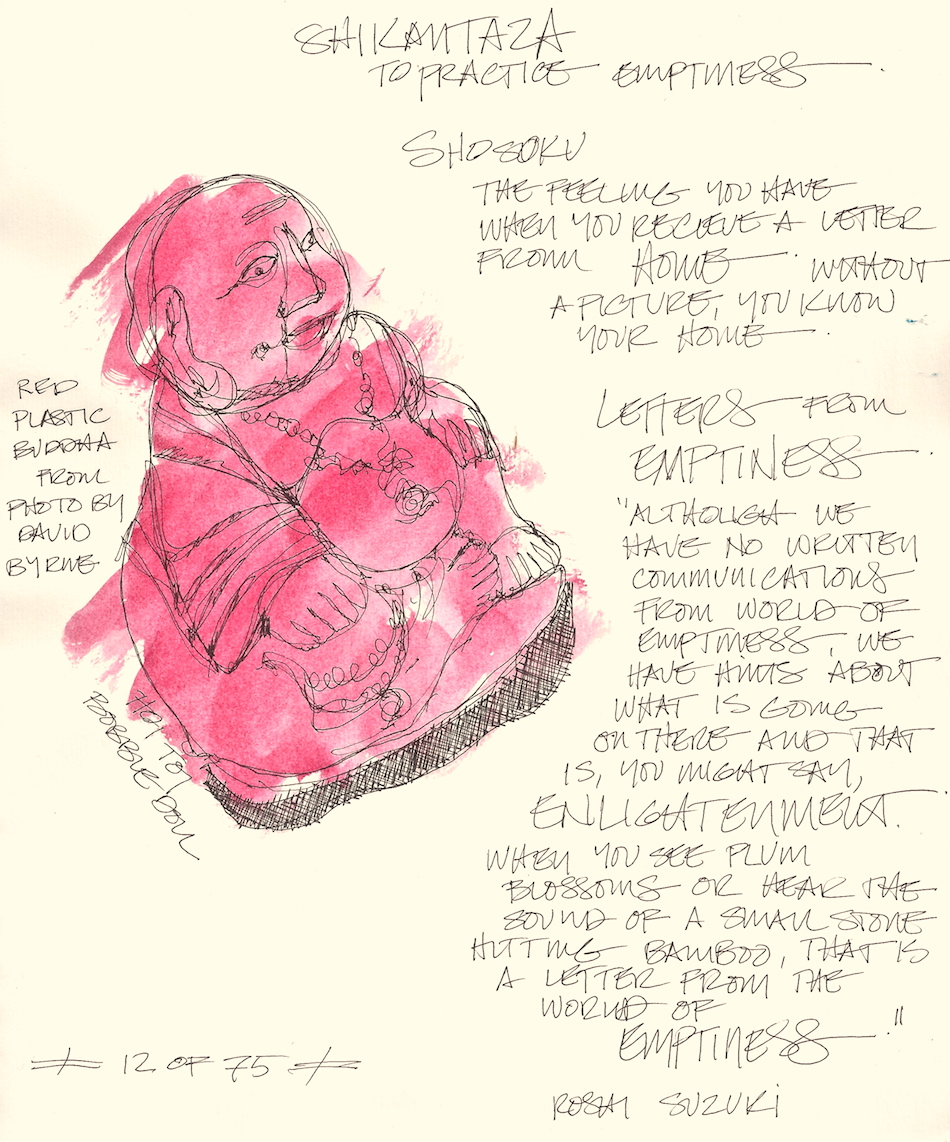 SHIKANTAZA
TO PRACTICE EMPTINESS.
SHOSOKU
THE FEELING YOU HAVE
WHEN YOU RECIEVE A LETTER
FROM HOME. WITHOUT
A PICTURE, YOU KNOW
YOUR HOME.
RED
PLASTIC
BUDDHA
FROM
PHOTO BY
DAVID
BYRNE
LETTERS FROM
EMPTINESS.
"ALTHOUGH WE
HAVE NO WRITTEN
COMMUNICATIONS
FROM WORLD OF
EMPTINESS, WE
HAVE HINTS ABOUT
WHAT IS GOING
ON THERE AND THAT
IS, YOU MIGHT SAY,
ENLIGHTENMENT.
WHEN YOU SEE PLUM
BLOSSOMS OR HEAR THE
SOUND OF A SMALL STONE
HITTING BAMBOO, THAT IS
A LETTER FROM THE
WORLD OF
EMPTINESS."
ROSHI SUZUKI
TO
BOBBLE
12 OF 75